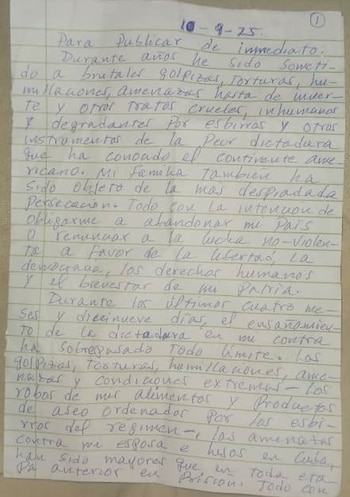 10-9-25. 1
Para Publicar de inmediato.
Durante años he sido someti-
do a brutales golpizas, torturas, hu-
millaciones, amenazas hasta de muer-
te y otros tratos crueles, inhumanos
y degradantes por esbirros y otros
instrumentos de la peor dictadura
que ha conocido el continente ame-
ricano. Mi familia tambien ha
sido objeto de la mas despiadada
persecucion. Todo con la intencion de
obligarme a abandonar mi País
o renunciar a la lucha no-violen-
ta a favor de la libertad, la
democracia, los derechos humanos
y el bienestar de mi Patria.
Durante los últimos cuatro me-
ses y diecinueve días, el ensañamien-
to de la dictadura en mi contra
ha sobrepasado todo límite. Las
golpizas, torturas, humillaciones, ame-
nazas y condiciones extremas - los
robos de mis alimentos y productos
de aseo ordenados por los esbi-
rros del regimen-, las amenazas
contra mi esposa e hijos en Cuba,
han sido mayores que en toda eta-
pa anterior en prision. Todo con